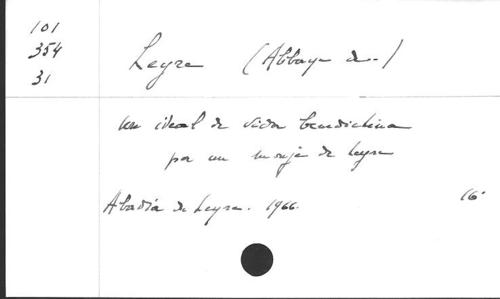 101
354
31
Leyre (Abbaye de -)
un ideal de vida benedictina
por un monje de Leyre
Abadia de Leyre. 1966. 16°